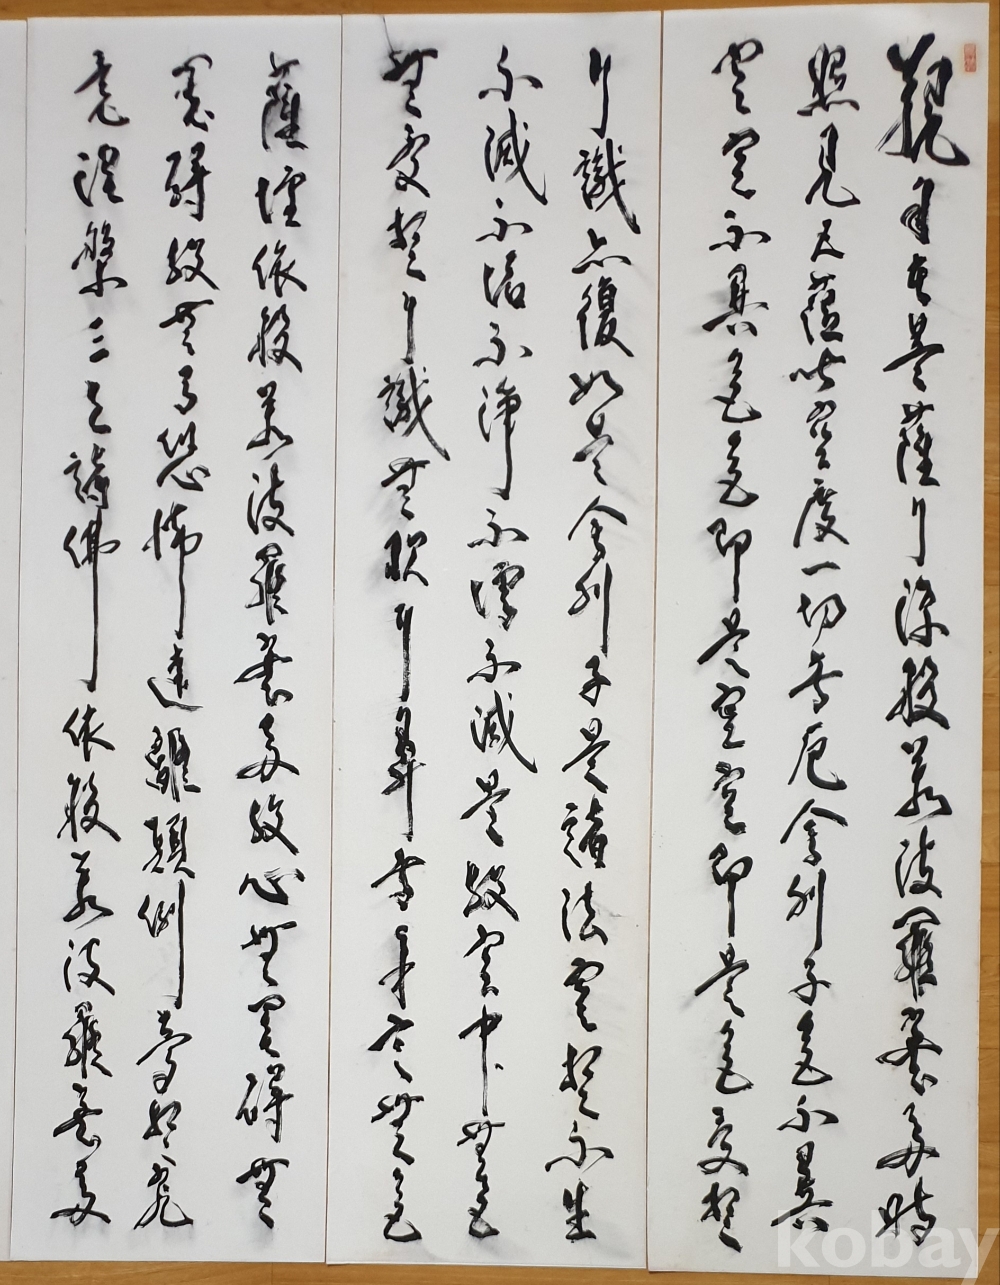 觀自在菩薩行深般若波羅蜜多時
照見五蘊皆空度一切苦厄舍利子色不異
空空不異色色即是空空即是色受想
行識亦復如是舍利子是諸法空相不生
不滅不垢不淨不增不減是故空中無色
無受想行識無眼耳鼻舌身意無色
薩埵依般若波羅蜜多故心無罣礙無
罣礙故無有恐怖遠離顛倒夢想究
竟涅槃三世諸佛依般若波羅蜜多
kobay